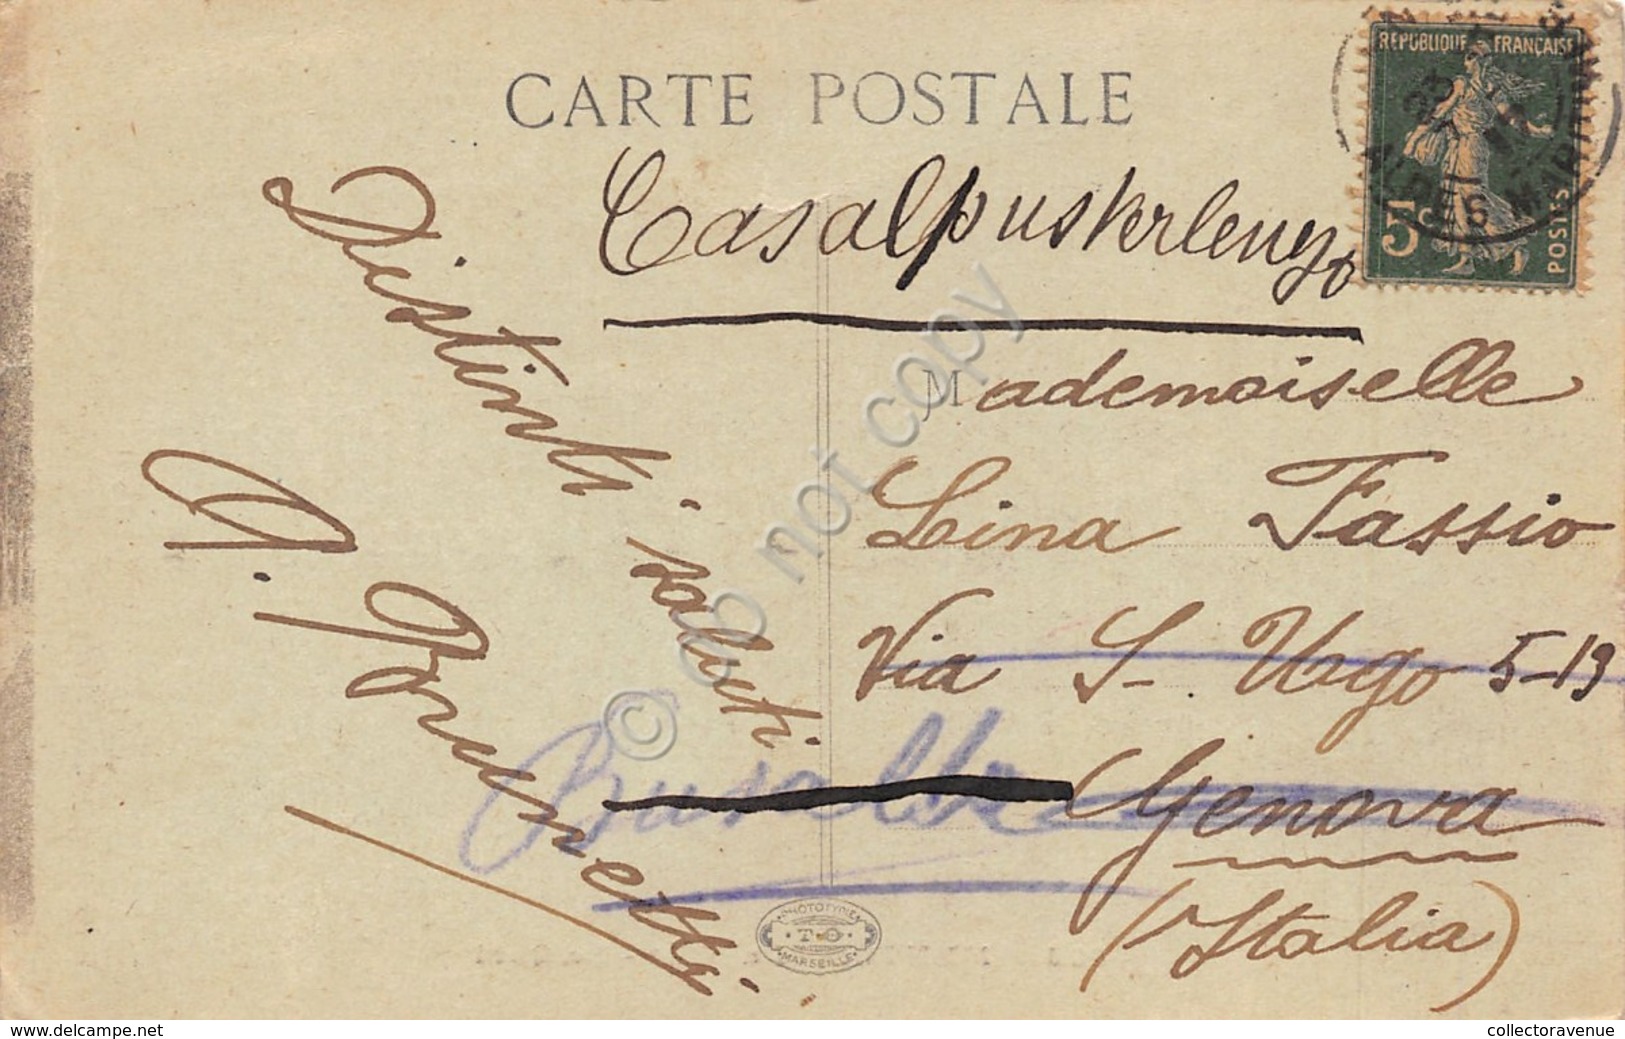 CARTE POSTALE
REPUBLIQUE FRANÇAISE
5c
POSTES
Casalpusterlengo
Mademoiselle
Lina Fassio
Via S. Ugo 5-19
Genova
(Italia)
Busalla
Distinti saluti
Brunetti
PHOTOTYPIE
MARSEILLE
© do not copy
www.delcampe.net
collectoravenue